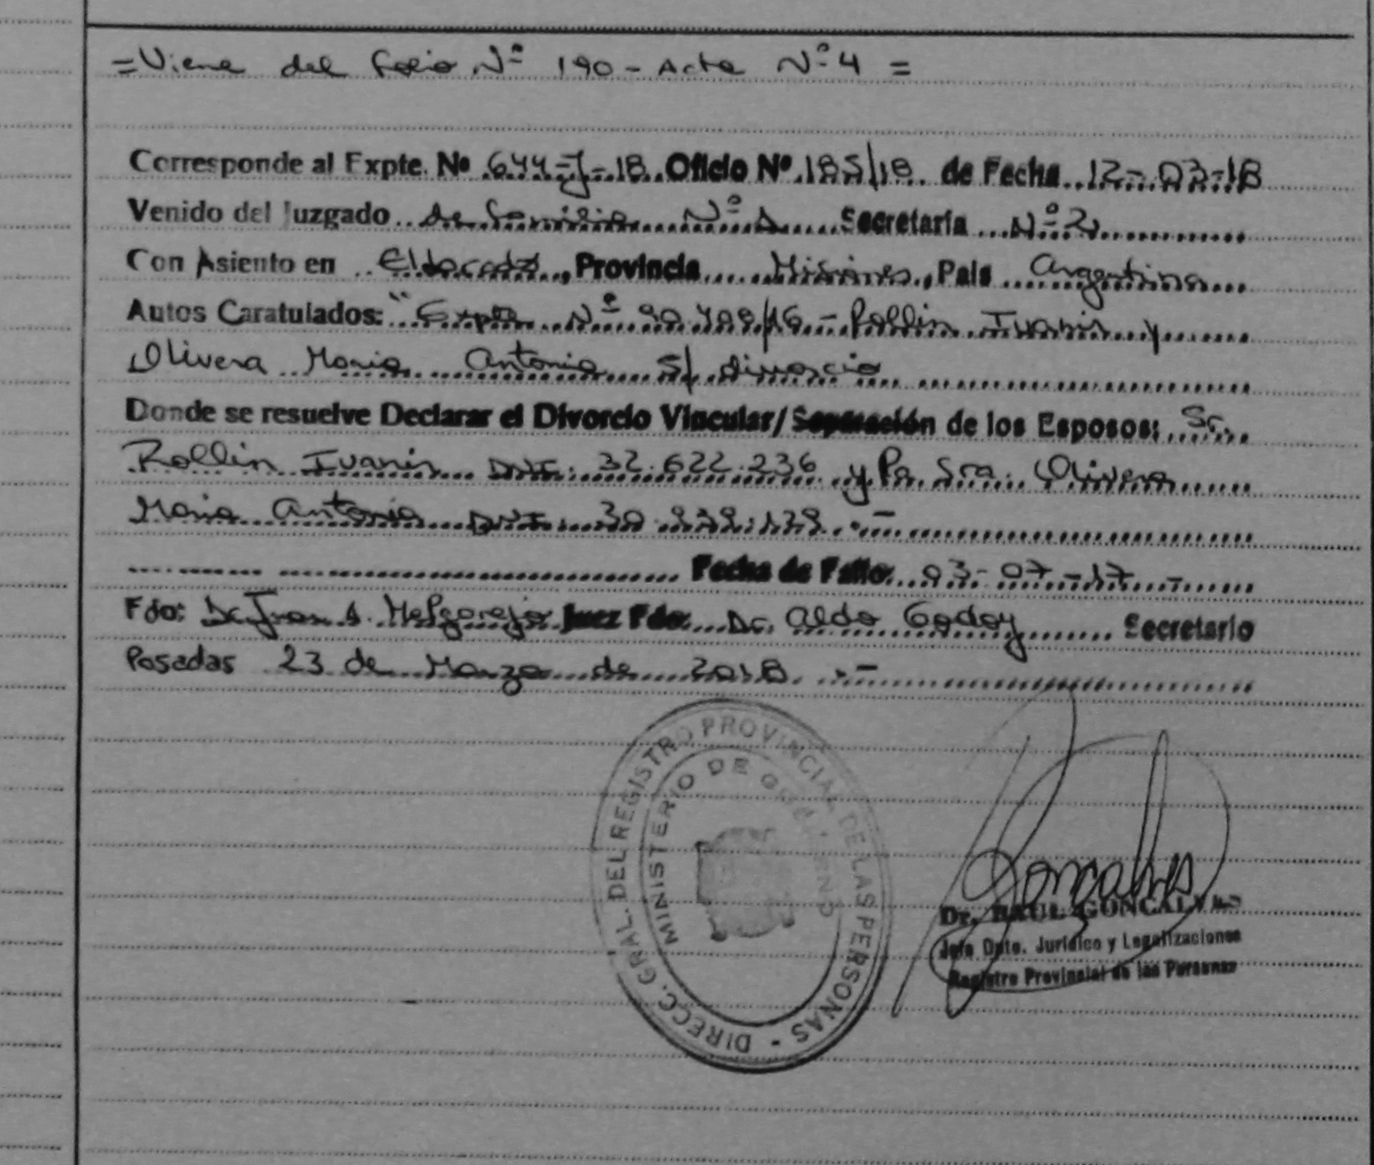 =Viene del folio Nº 190 - Acta Nº 4 =
Corresponde al Expte. Nº 644-J-18. Oficio Nº 185/18. de Fecha 12-03-18
Venido del Juzgado de familia Nº 1 Secretaría Nº 2
Con Asiento en Eldorado, Provincia Misiones, País Argentina
Autos Caratulados: "Expte Nº - Rollin Ivanir y
Olivera Maria Antonia s/ divorcio
Donde se resuelve Declarar el Divorcio Vincular/Separación de los Esposos: Sr.
Rollin Ivanir DNI. 32.622.236 y la Sra. Olivera
Maria Antonia DNI. .-
Fecha de Fallo: 03-07-17 -
Fdo: Dr. Juan A. Melgarejo Juez Fdo: Dr. Aldo Godoy Secretario
Posadas 23 de Marzo de 2018. .-
DIRECC. GRAL. DEL REGISTRO PROVINCIAL DE LAS PERSONAS -
MINISTERIO DE GOBIERNO
Goncalves
Dr. RAUL GONCALVES
Jefe Dpto. Jurídico y Legalizaciones
Registro Provincial de las Personas